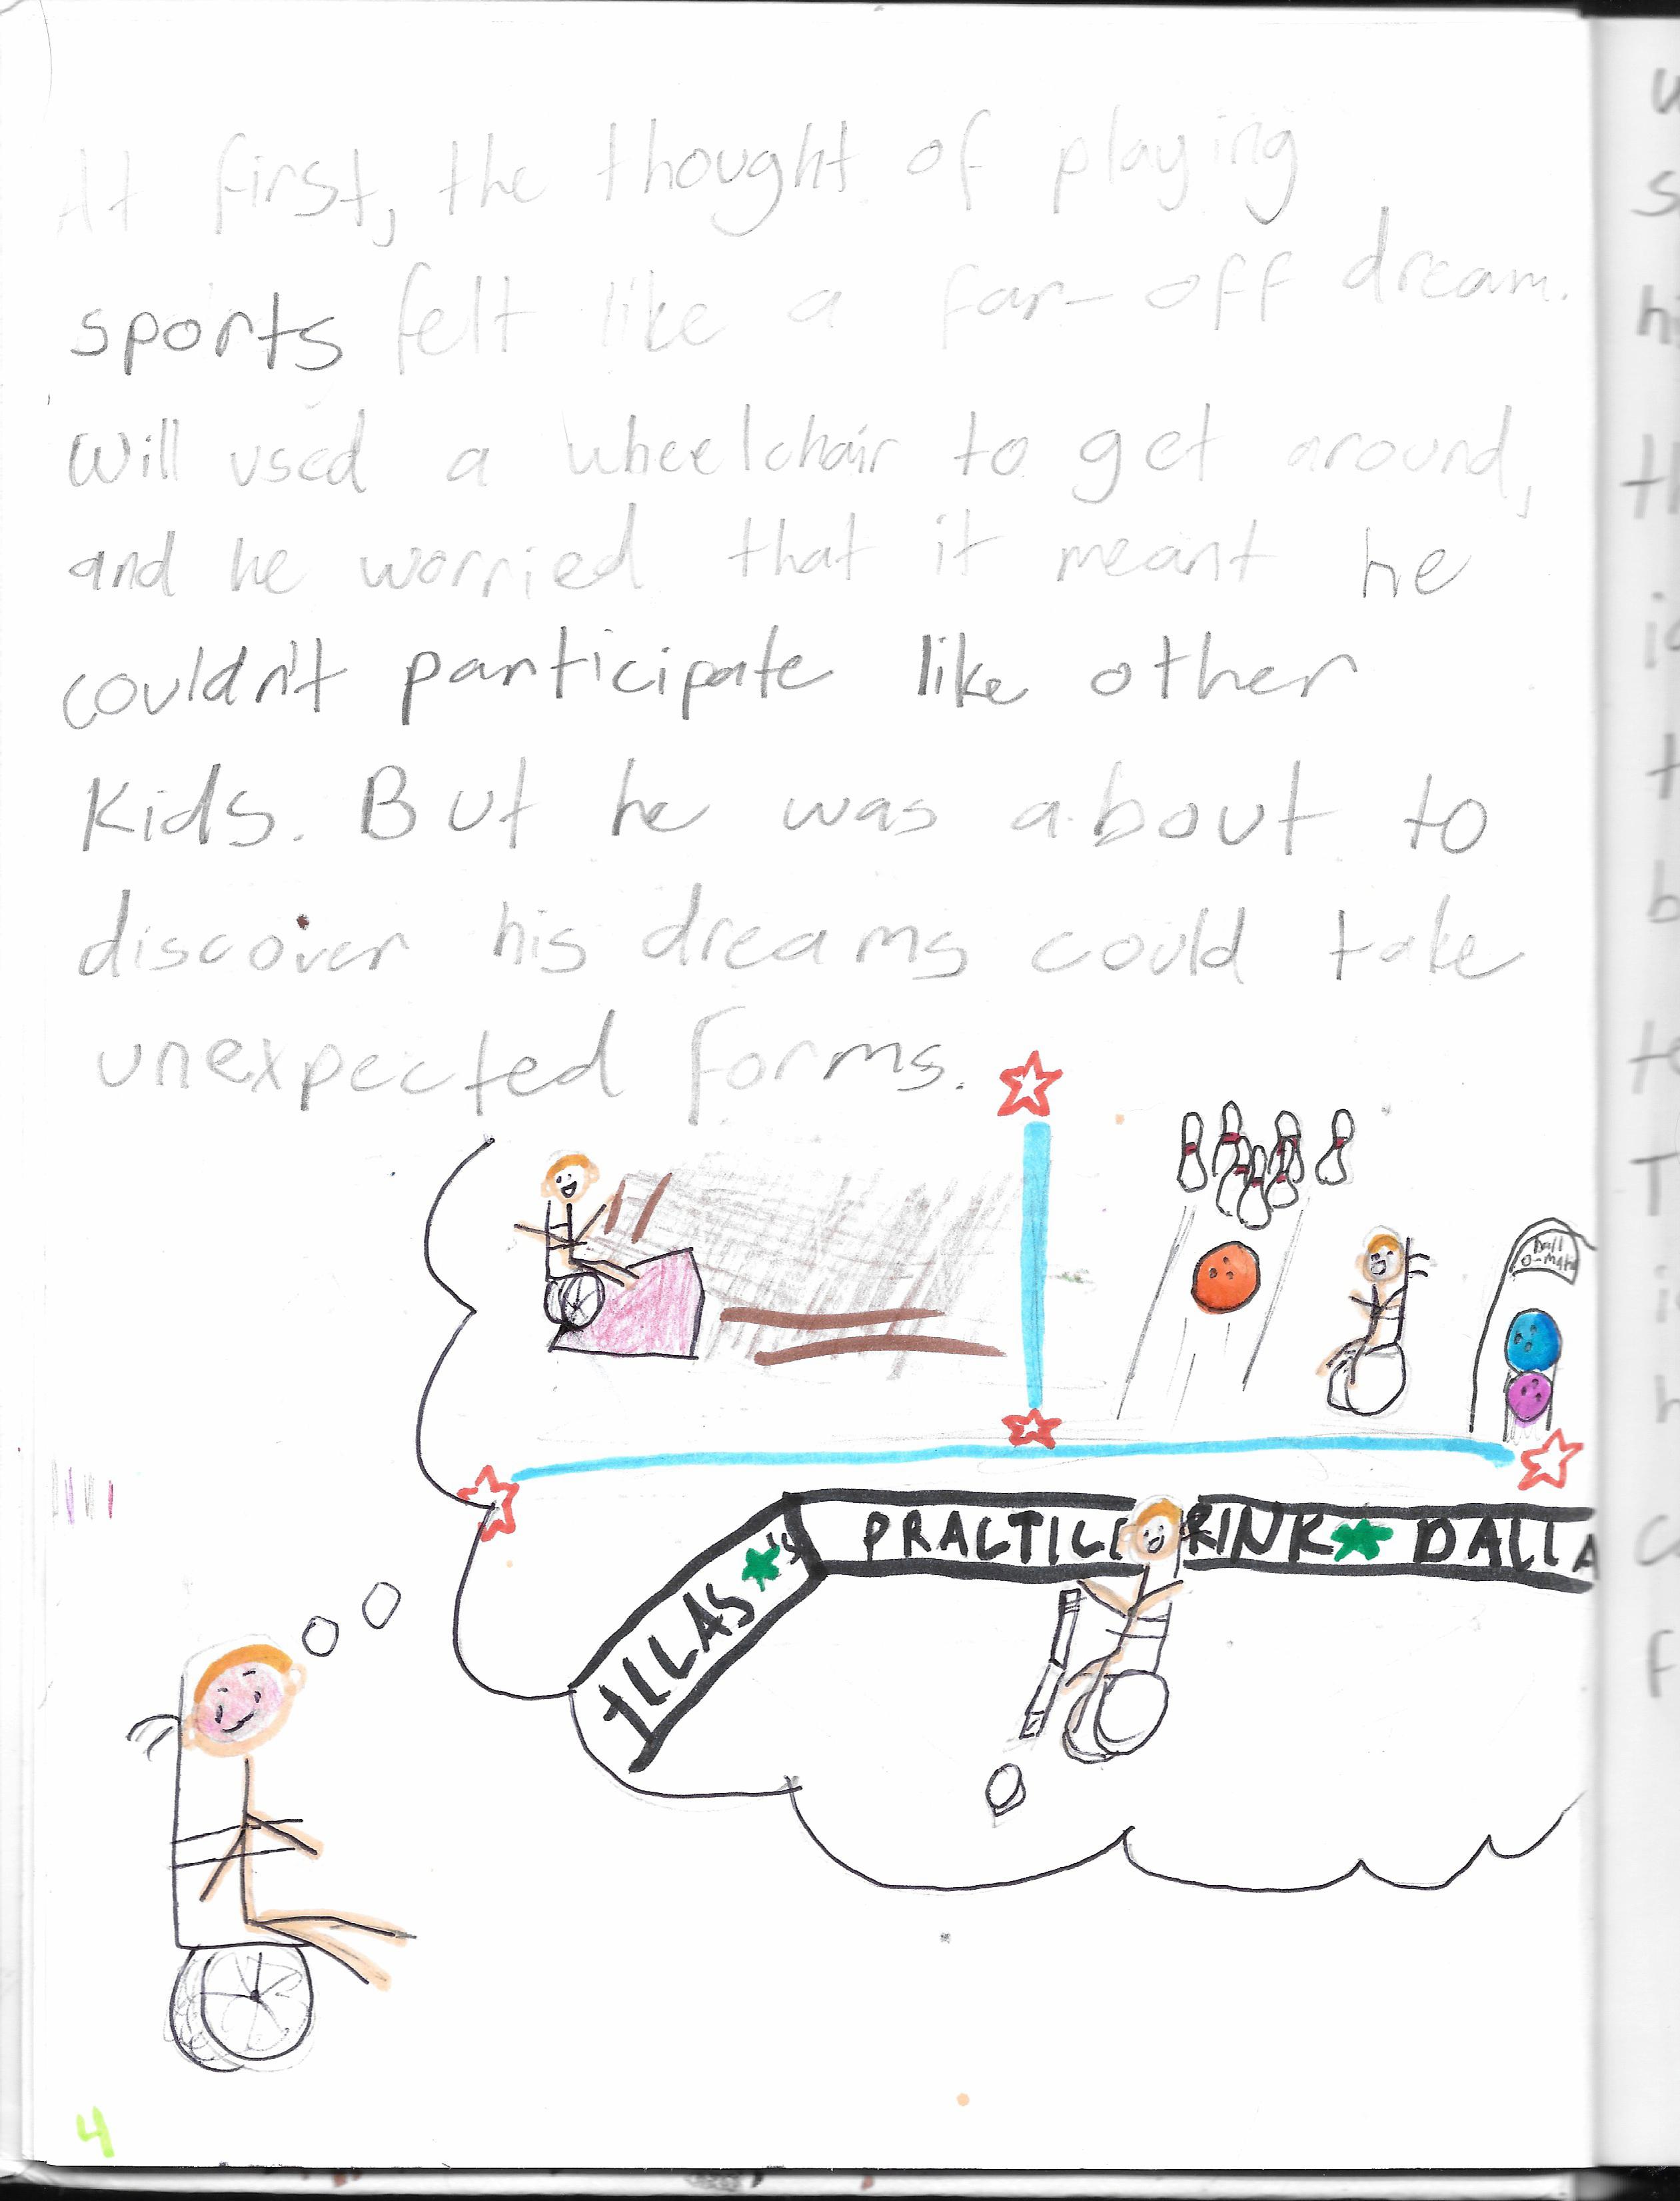 At first, the thought of playing
sports felt like a far-off dream.
Will used a wheelchair to get around,
and he worried that it meant he
couldn't participate like other
Kids. But he was about to
discover his dreams could take
unexpected forms.
Ball
O-Mat
PRACTICE RINK ★ DALLA
LLAS ★
4